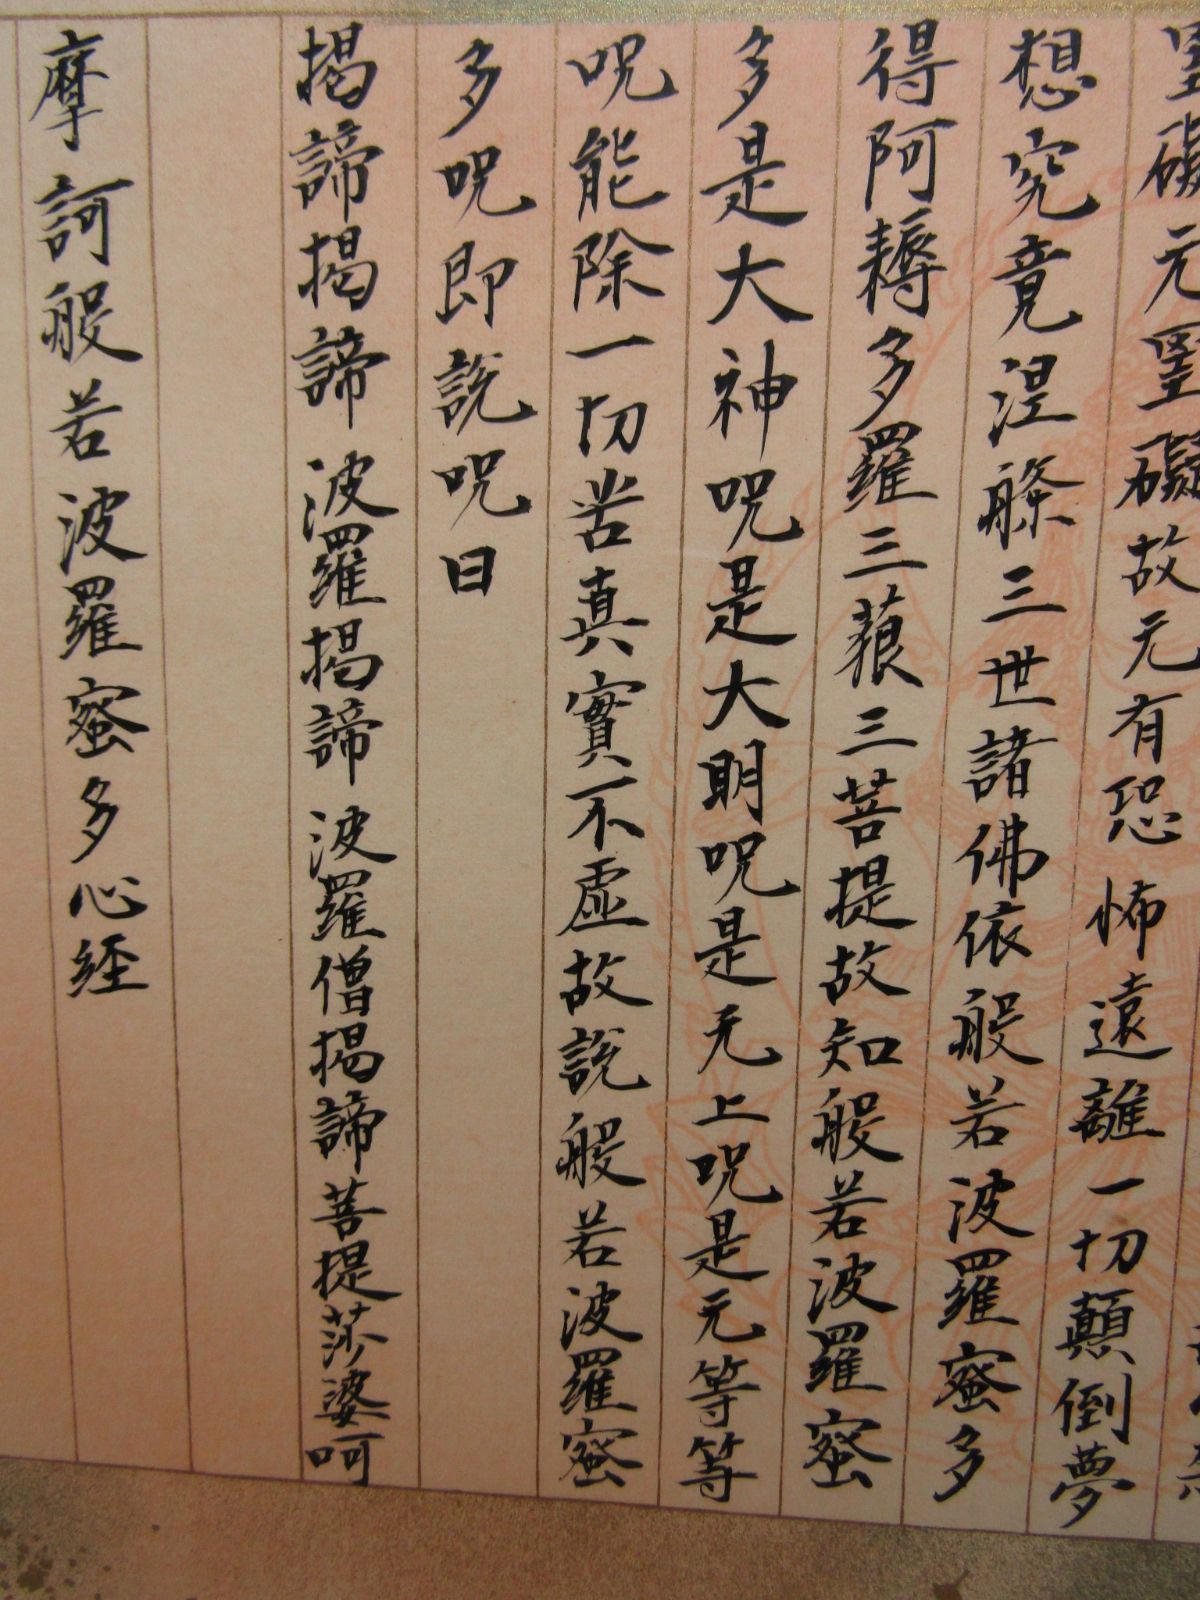 罣礙无罣礙故无有恐怖遠離一切顛倒夢
想究竟涅槃三世諸佛依般若波羅蜜多
得阿耨多羅三藐三菩提故知般若波羅蜜
多是大神呪是大明呪是无上呪是无等等
呪能除一切苦真實不虛故說般若波羅蜜
多呪即說呪曰
揭諦揭諦波羅揭諦波羅僧揭諦菩提莎婆呵
摩訶般若波羅蜜多心経